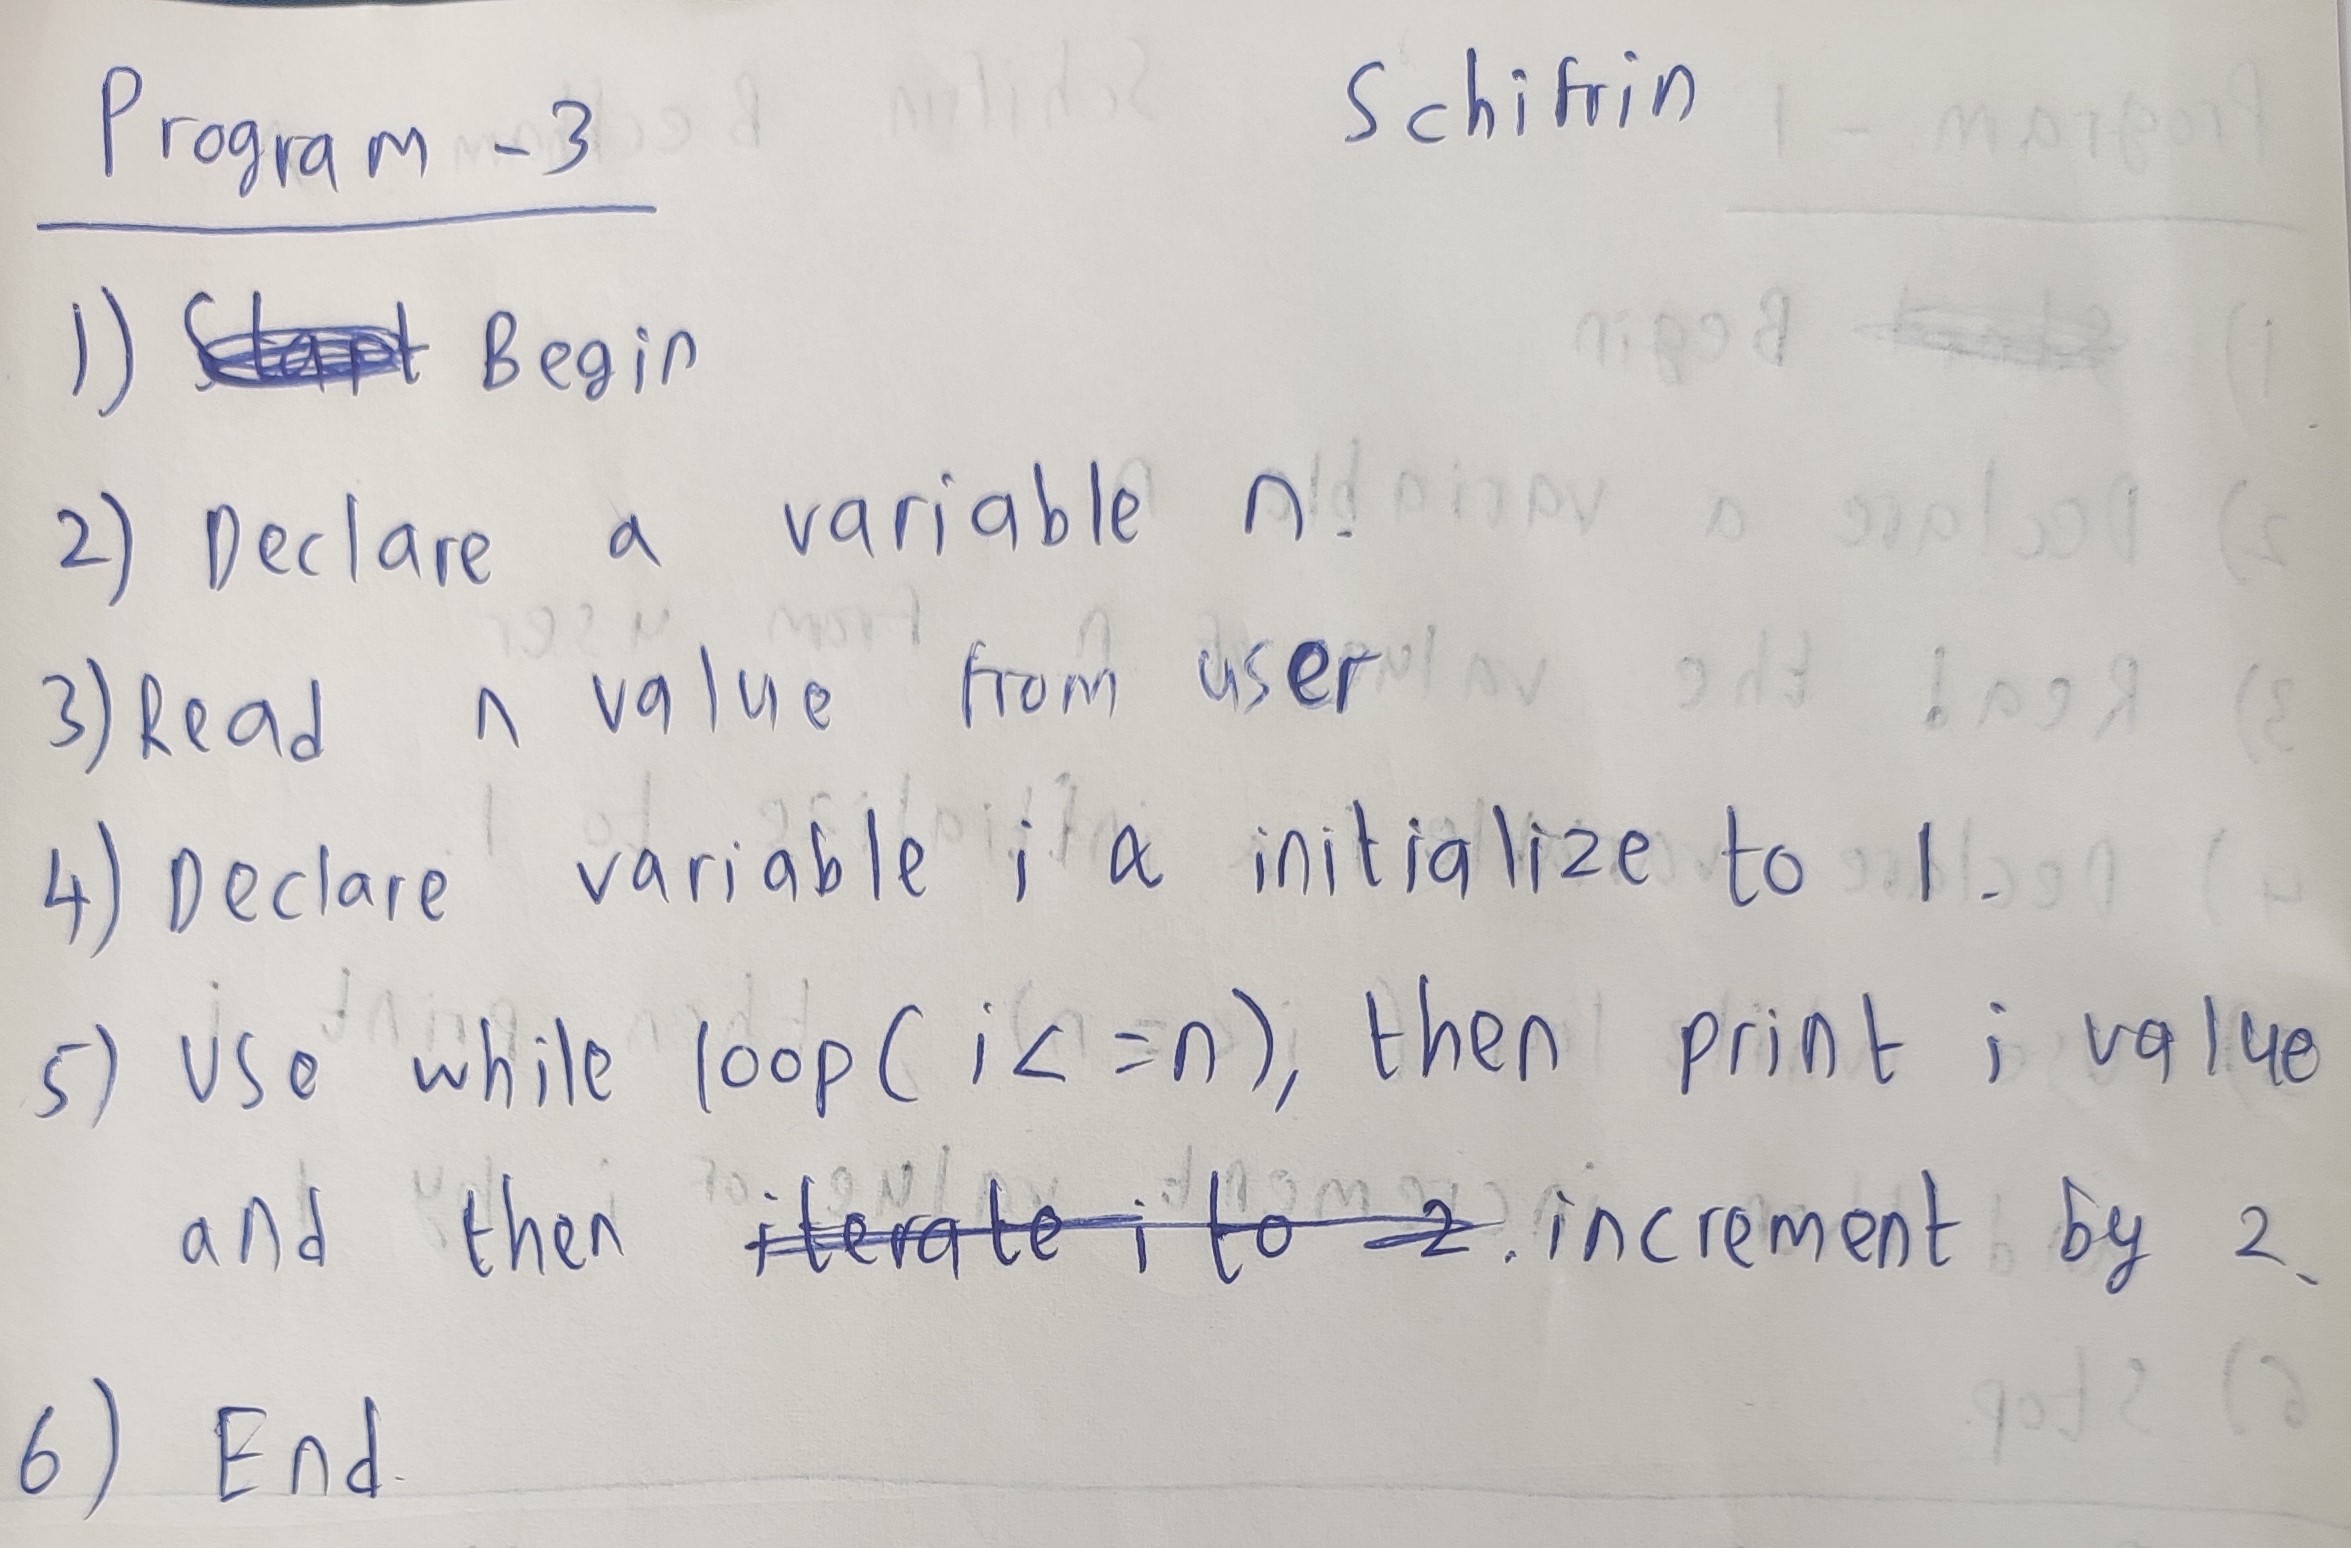 Program - 3 Schifrin
1) Start Begin
2) Declare a variable n.
3) Read n value from user
4) Declare variable i & initialize to 1.
5) Use while loop( i<=n), then print i value
and then iterate i to 2. increment by 2.
6) End.